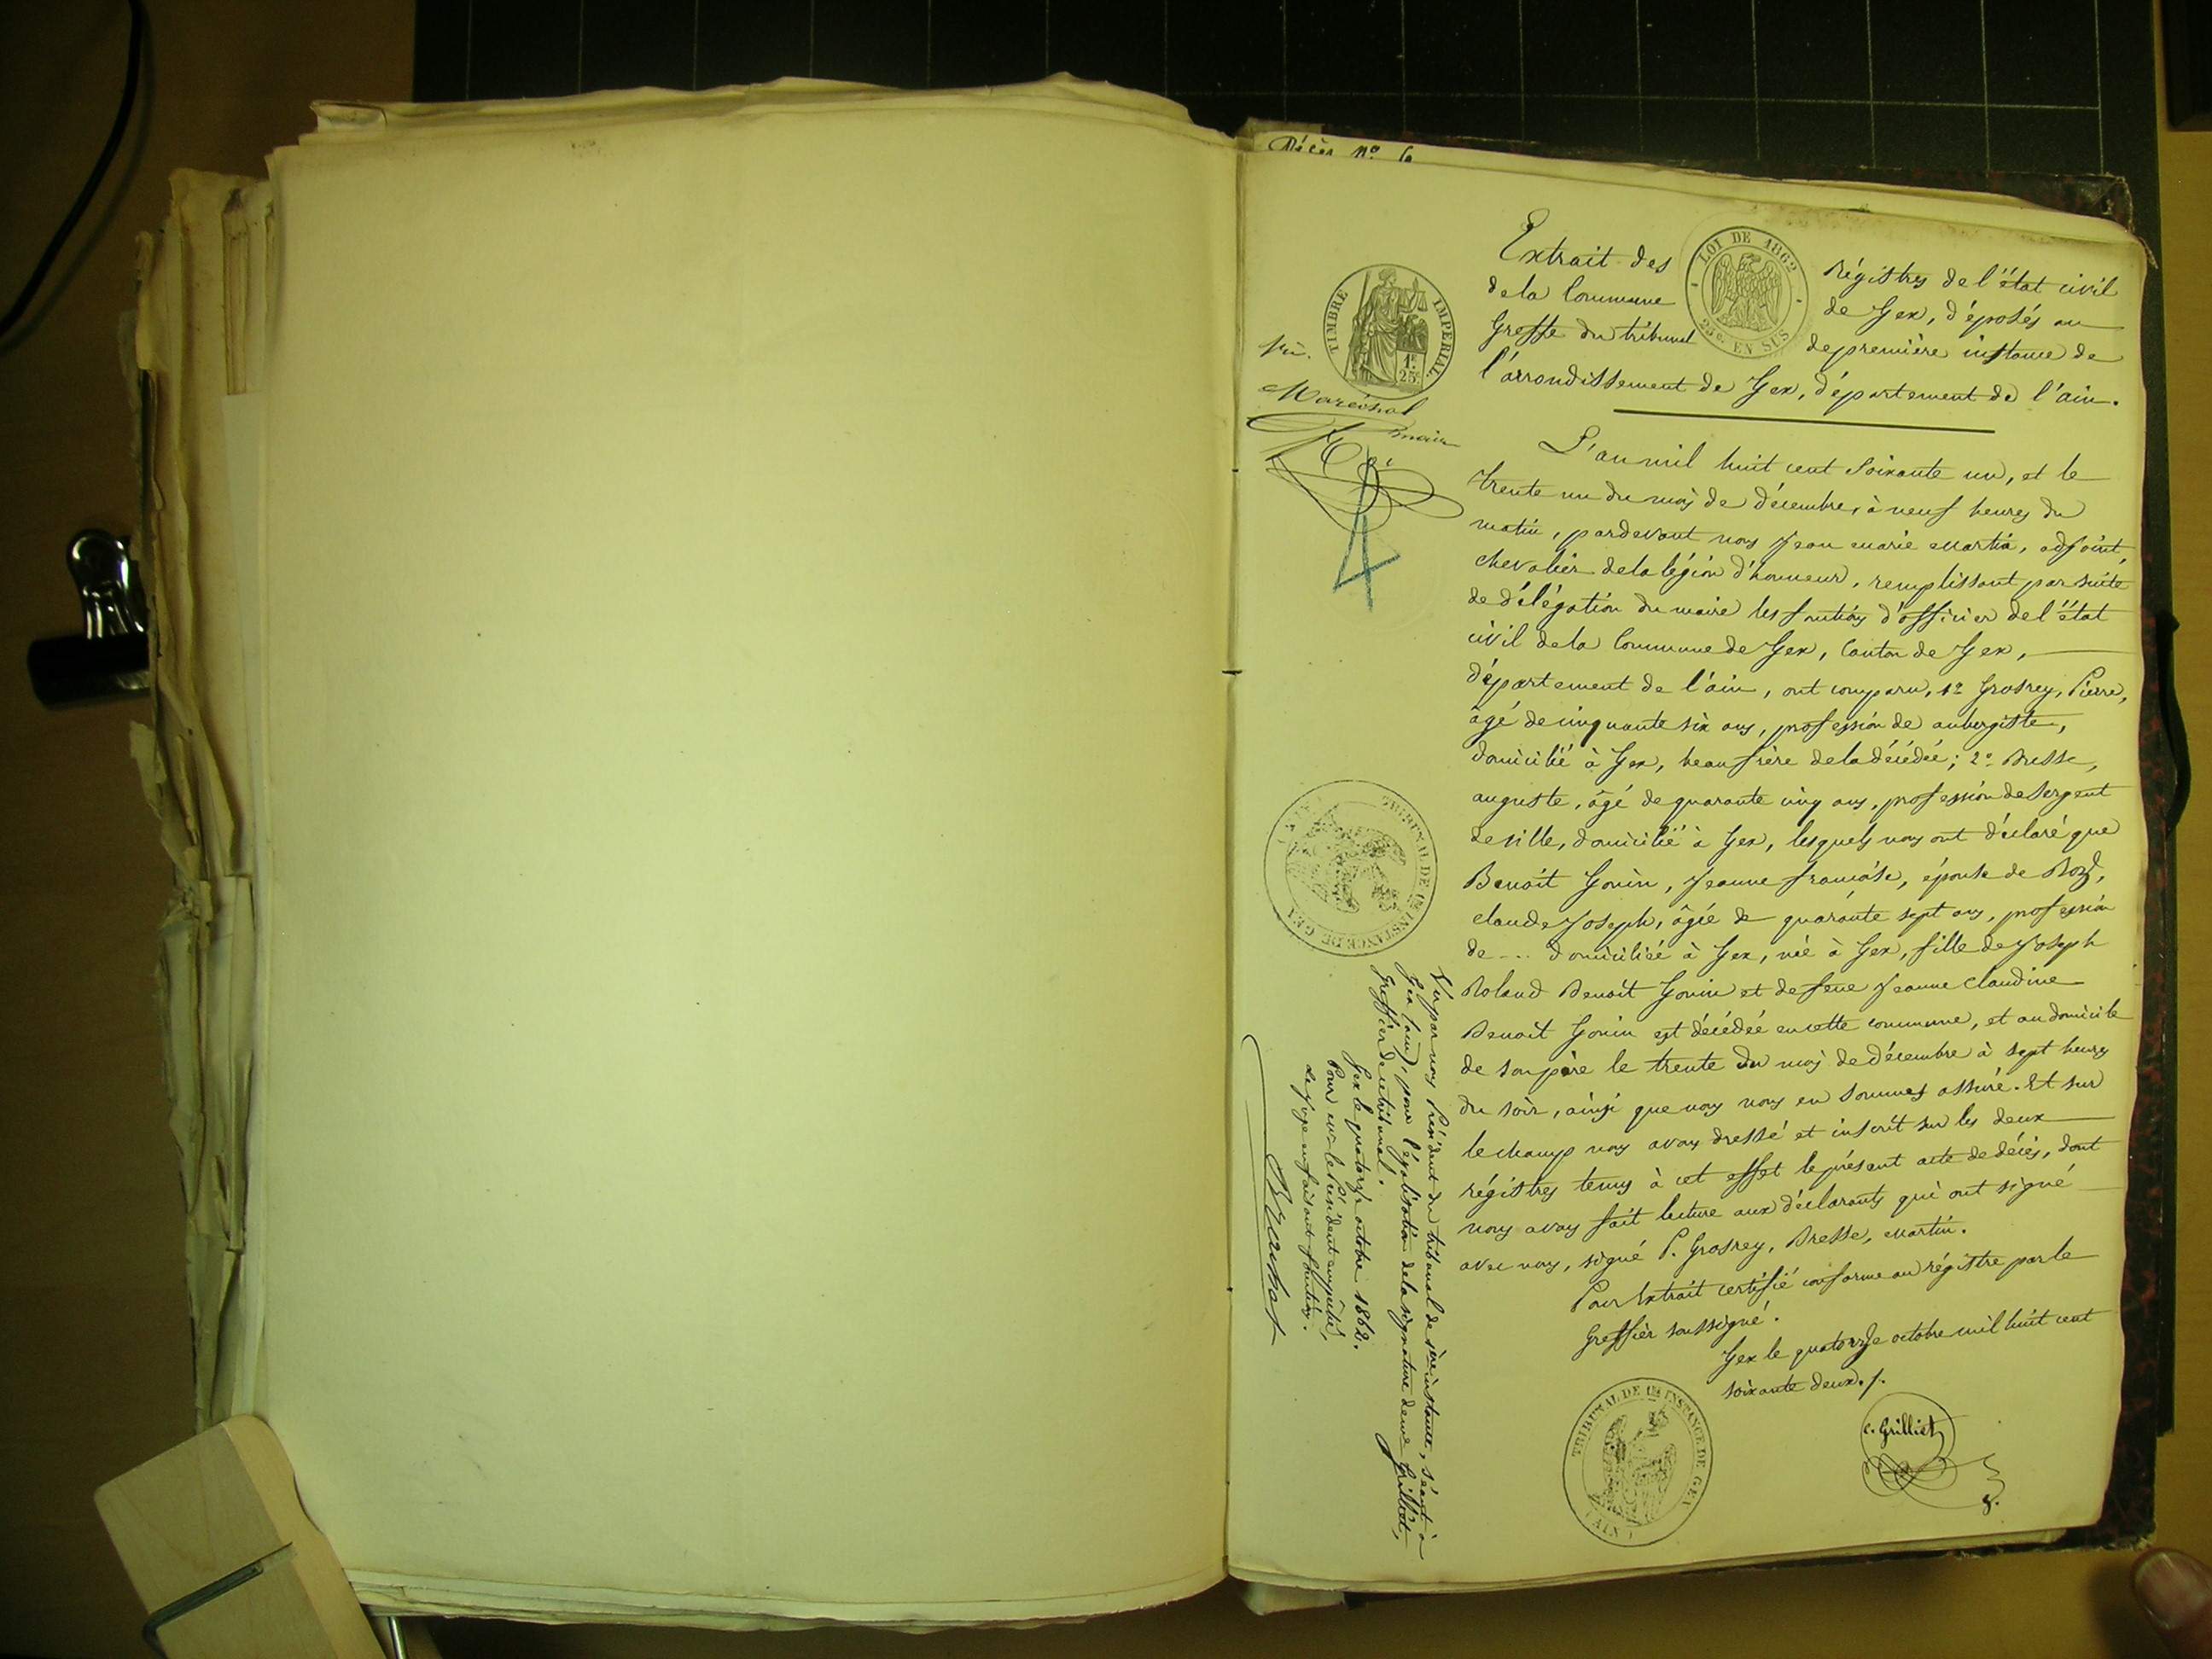 Décès No 6
Extrait des Régistres de l'état civil
de la Commune de Gex, déposés au
Greffe du tribunal de première instance de
l'arrondissement de Gex, département de l'ain.
LOI DE 1862
25c. EN SUS
TIMBRE IMPERIAL
1F.
25c
Vu.
Maréchal
4
L'an mil huit cent soixante un, et le
trente un du mois de décembre, à neuf heures du
matin, pardevant nous Jean marie Martin, adjoint,
chevalier de la légion d'honneur, remplissant par suite
de délégation du maire les fonctions d'officier de l'état
civil de la Commune de Gex, Canton de Gex,
département de l'ain, ont comparu, 1o Grosrey, Pierre,
âgé de cinquante six ans, profession de aubergiste,
domicilié à Gex, beau frère de la décédée; 2o Bresse,
auguste, âgé de quarante cinq ans, profession de sergent
de ville, domicilié à Gex, lesquels nous ont déclaré que
Benoit Gonin, Jeanne françoise, épouse de Roz,
claude Joseph, âgée de quarante sept ans, profession
de ... domiciliée à Gex, née à Gex, fille de Joseph
Roland Benoit Gonin et de feue Jeanne Claudine
Benoit Gonin est décédée en cette commune, et au domicile
de son père le trente du mois de décembre à sept heures
du soir, ainsi que nous nous en sommes assuré. Et sur
le champ nous avons dressé et inscrit sur les deux
régistres tenus à cet effet le présent acte de décès, dont
nous avons fait lecture aux déclarants qui ont signé
avec nous, signé P. Grosrey, Bresse, Martin.
Pour Extrait certifié conforme au régistre par le
Greffier soussigné.
Gex le quatorze octobre mil huit cent
soixante deux./.
C. Grilliet
TRIBUNAL DE 1re INSTANCE DE GEX
(AIN)
TRIBUNAL DE 1re INSTANCE DE GEX
Vu par nous Président du tribunal de 1ère instance, séant à
Gex (ain), pour légalisation de la signature de me Grilliet,
Greffier de ce tribunal.
Gex le quatorze octobre 1862.
Pour le Président empêché,
Le Juge en faisant fonctions.